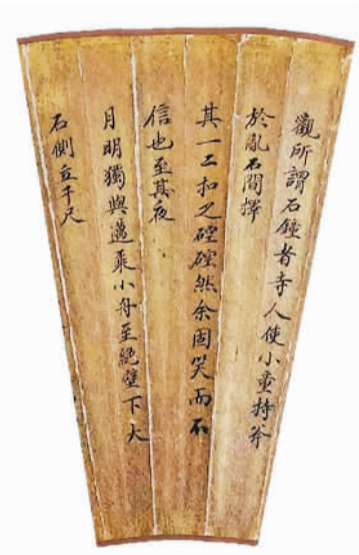 觀所謂石鐘者寺人使小童持斧
於亂石間擇
其一二扣之硿硿然余固笑而不
信也至其夜
月明獨與邁乘小舟至絶壁下大
石側立千尺